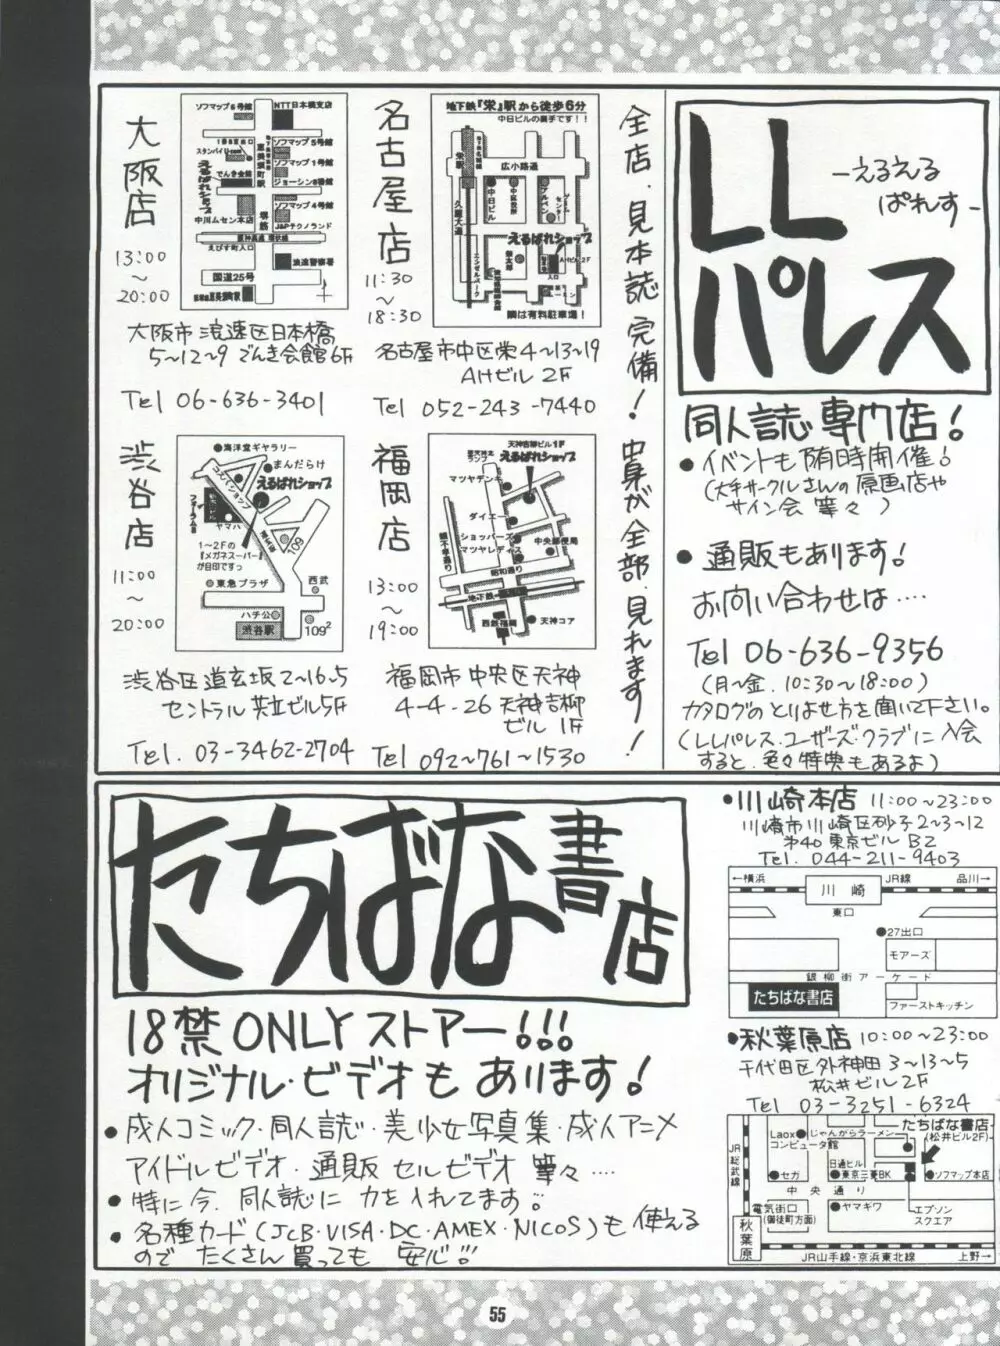 LL
パレス
-えるえる
ぱれす-
同人誌専門店!
●イベントも随時開催!
(大手サークルさんの原画店や
サイン会 等々 )
●通販もあります!
お向い合わせは‥‥
Tel 06-636-9356
(月~金.10:30~18:00)
カタログのとりよせ方を聞いて下さい。
(LLパレス・ユーザーズ・クラブに入会
すると、色々特典もあるよ)
全店.見本誌 完備!中身が全部.見れます!
名古屋店
11:30
~
18:30
地下鉄『栄』駅から徒歩6分
中日ビルの裏手です!!
栄駅
広小路通
久屋大通
中日ビル
中区役所
えるぱれショップ
エンゼルパーク
AHビル2F
入口
隣は有料駐車場!
名古屋市中区栄4~13~19
AHビル 2F
Tel 052-243-7440
大阪店
13:00
~
20:00
ソフマップ6号館
NTT日本橋支店
1番B出口
スタンバイU-com
恵美須町駅
ソフマップ5号館
ソフマップ1号館
でんき会館
ジョーシン8番館
えるぱれショップ
ソフマップ4号館
中川ムセン本店
堺筋
J&Pテクノランド
阪神高速 環状線
えびす町入口
浪速警察署
国道25号
大阪市浪速区日本橋
5~12~9 でんき会館6F
Tel 06-636-3401
福岡店
13:00
~
19:00
天神吉柳ビル1F
えるぱれショップ
マツヤデンキ
ダイエー
ショッパーズ
マツヤレディス
中央郵便局
昭和通り
地下鉄
西鉄福岡
天神コア
福岡市中央区天神
4-4-26 天神吉柳
ビル 1F
Tel 092~761~1530
渋谷店
11:00
~
20:00
海洋堂ギャラリー
まんだらけ
えるぱれショップ
フォーラム8
ヤマハ
1~2Fの
『メガネスーパー』
が目印ですっ
109
東急プラザ
西武
ハチ公
渋谷駅
109²
渋谷区道玄坂2~16~5
セントラル共立ビル5F
Tel. 03-3462-2704
たちばな書店
18禁ONLYストアー!!!
オリジナル・ビデオもあります!
●成人コミック・同人誌・美少女写真集・成人アニメ
アイドルビデオ・通販 セルビデオ 等々‥‥
●特に今、同人誌に力を入れてます!!
●各種カード(JCB・VISA・DC・AMEX・NICOS)も使える
のでたくさん買っても 安心!!!
●川崎本店 11:00~23:00
川崎市川崎区砂子2~3~12
第40東京ビル B2
Tel. 044-211-9403
←横浜
川崎
JR線
品川→
東口
●27出口
モアーズ
銀柳街アーケード
たちばな書店
ファーストキッチン
●秋葉原店 10:00~23:00
千代田区外神田3~13~5
松井ビル2F
Tel 03-3251-6324
たちばな書店
(松井ビル2F)
Laox
コンピュータ館
じゃんがらラーメン
JR総武線
セガ
日通ビル
東京三菱BK
ソフマップ本店
中央通り
電気街口
(御徒町方面)
ヤマギワ
エプソン
スクエア
秋葉原
JR山手線・京浜東北線
上野→
55